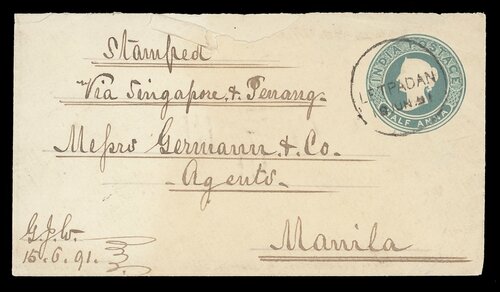 Stamped
Via Singapore & Penang.
Messrs Germann & Co.
Agents
Manila
G.J.W.
15.6.91.
INDIA POSTAGE
HALF ANNA
TPADAN
JUN